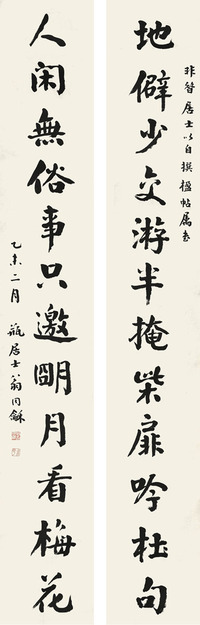 非居士以自撰楹帖屬書
地僻少交游半掩柴扉吟杜句
人閑無俗事只邀朙月看梅花
乙未二月
瓶居士翁同龢